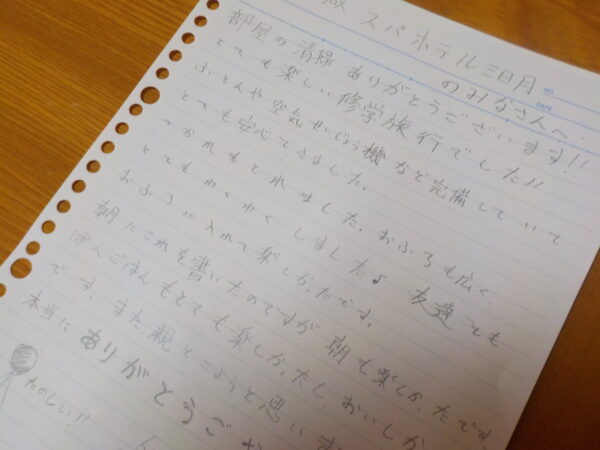 スパホテル三日月
のみなさんへ
部屋の清掃ありがとうございます!!
とても楽しい修学旅行でした!!
ふとんや空気せいじょう機など完備していて
とても安心できました。
つかれもとれました。おふろも広く、
とてもわくわくしました♪ 友達とも
おふろに入れて楽しかったです。
朝にこれを書いたのですが朝も楽しかったです。
ばんごはんもとても楽しかったし、おいしか
です。また親とこようと思いま
本当にありがとうござ
たのしい!!